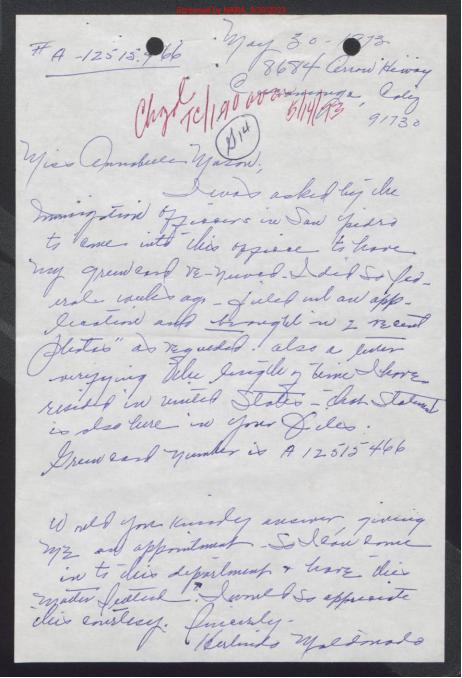 Scanned by NARA, 5/30/2023
# A-12515466
May 30-1973
8684 Arrow Hiway
Cucamonga, Calif
91730
Chgd
TC/190
5/14/73
G14
Miss Annabelle Mason,
I was asked by the
Immigration Officers in San Pedro
to come into this office to have
my green card re-newed. I did so sev-
eral weeks ago - filled out an app-
lication and brought in 2 recent
photos" as requested. also a letter
verifying the length of time I have
resided in united States - that statement
is also here in your files.
Green card number is A 12515466
Would you kindly answer, giving
me an appointment - So I can come
in to this department & have this
matter settled. I would so appreciate
this courtesy. Sincerely -
Herlinda Maldonado